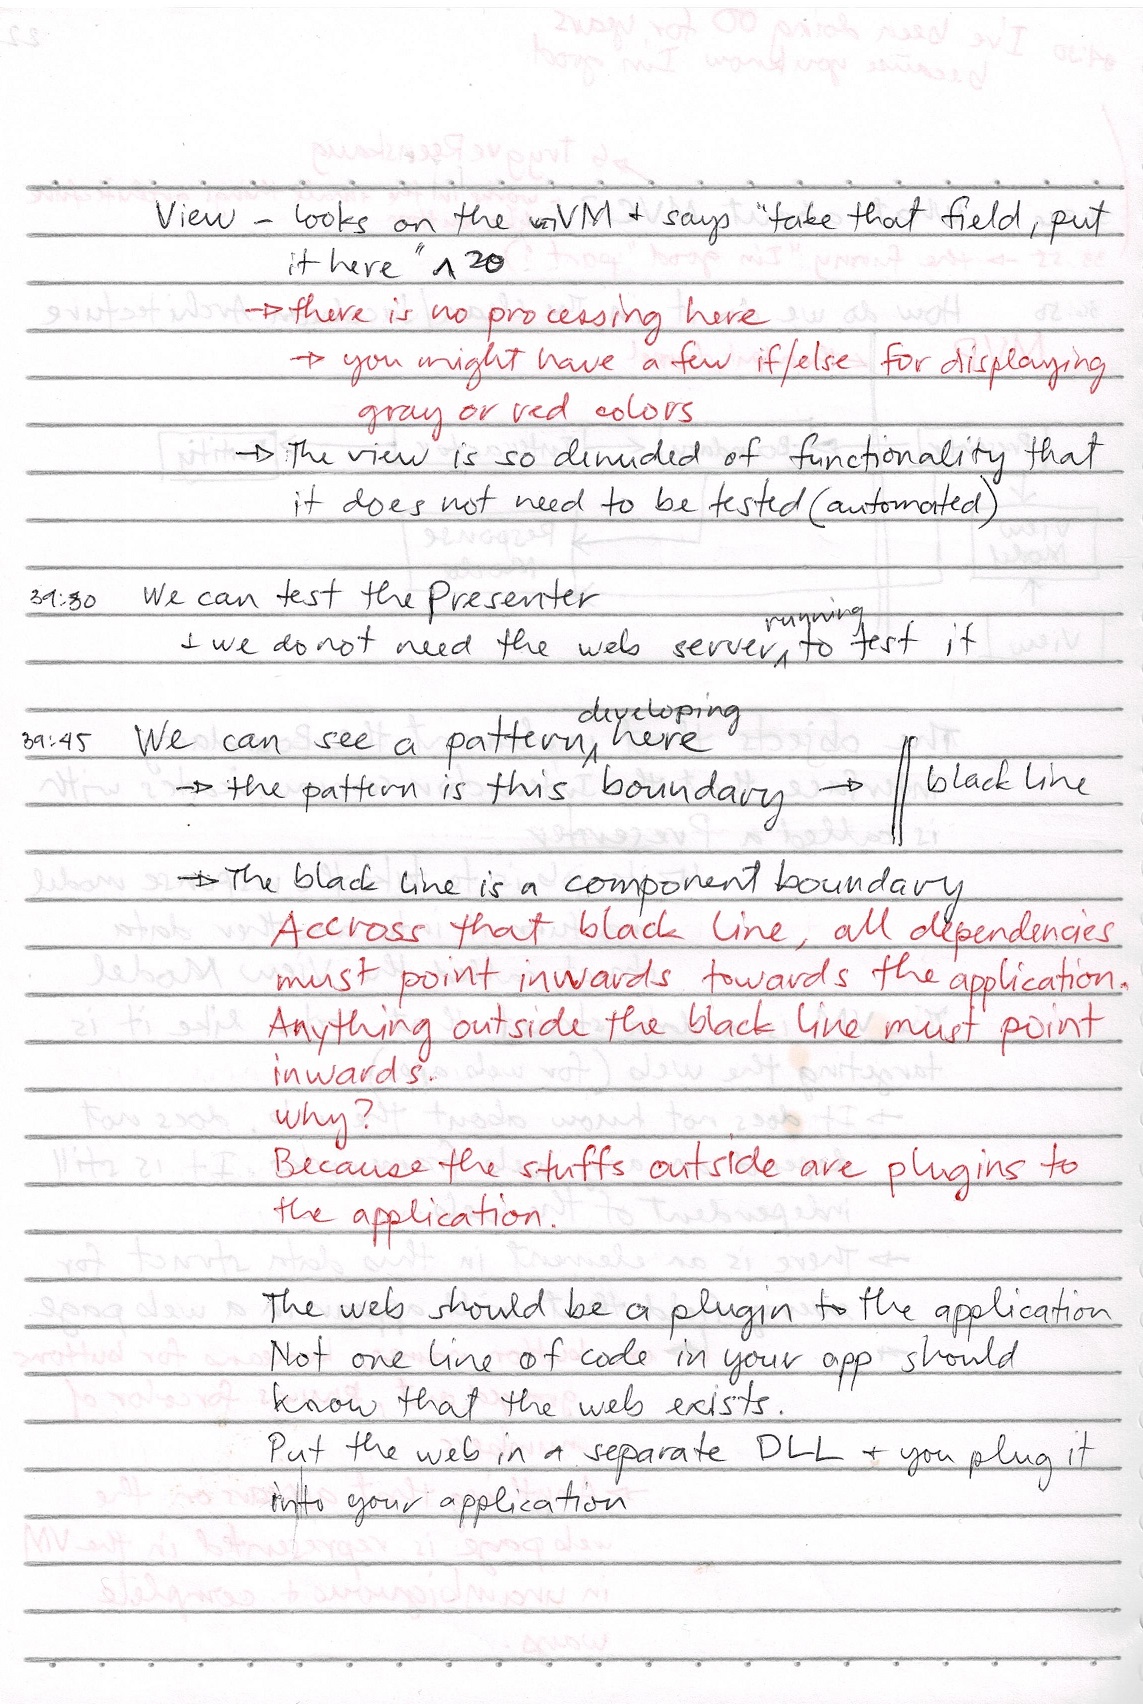 View - looks on the VM + says "take that field, put
it here" ^ 20
→ there is no processing here
→ you might have a few if/else for displaying
gray or red colors
→ The view is so denuded of functionality that
it does not need to be tested (automated)
39:30 We can test the Presenter
+ we do not need the web server ^ running to test it
39:45 We can see a pattern ^ developing here
→ the pattern is this boundary → || black line
→ The black line is a component boundary
Accross that black line, all dependencies
must point inwards towards the application.
Anything outside the black line must point
inwards.
why?
Because the stuffs outside are plugins to
the application.
The web should be a plugin to the application
Not one line of code in your app should
know that the web exists.
Put the web in a separate DLL + you plug it
into your application